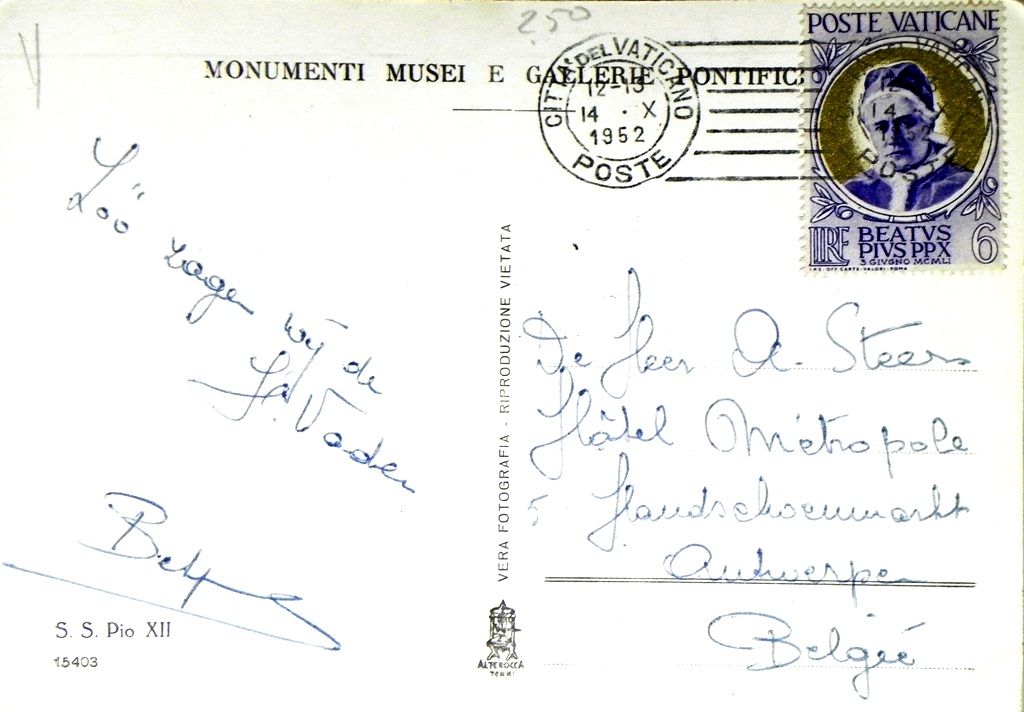 250
MONUMENTI MUSEI E GALLERIE PONTIFICI
CITTA' DEL VATICANO
12-13
14 · X
1952
POSTE
POSTE VATICANE
LIRE
BEATVS
PIVS PP X
6
3 GIVGNO MCMLI
I.P.S. OFF. CARTE-VALORI-ROMA
Zóó zagen wij de
St. Vader
VERA FOTOGRAFIA - RIPRODUZIONE VIETATA
De Heer A. Steers
Hôtel Métropole
5 Handschoenmarkt
Antwerpen
België
S. S. Pio XII
15403
ALTEROCCA
TERNI